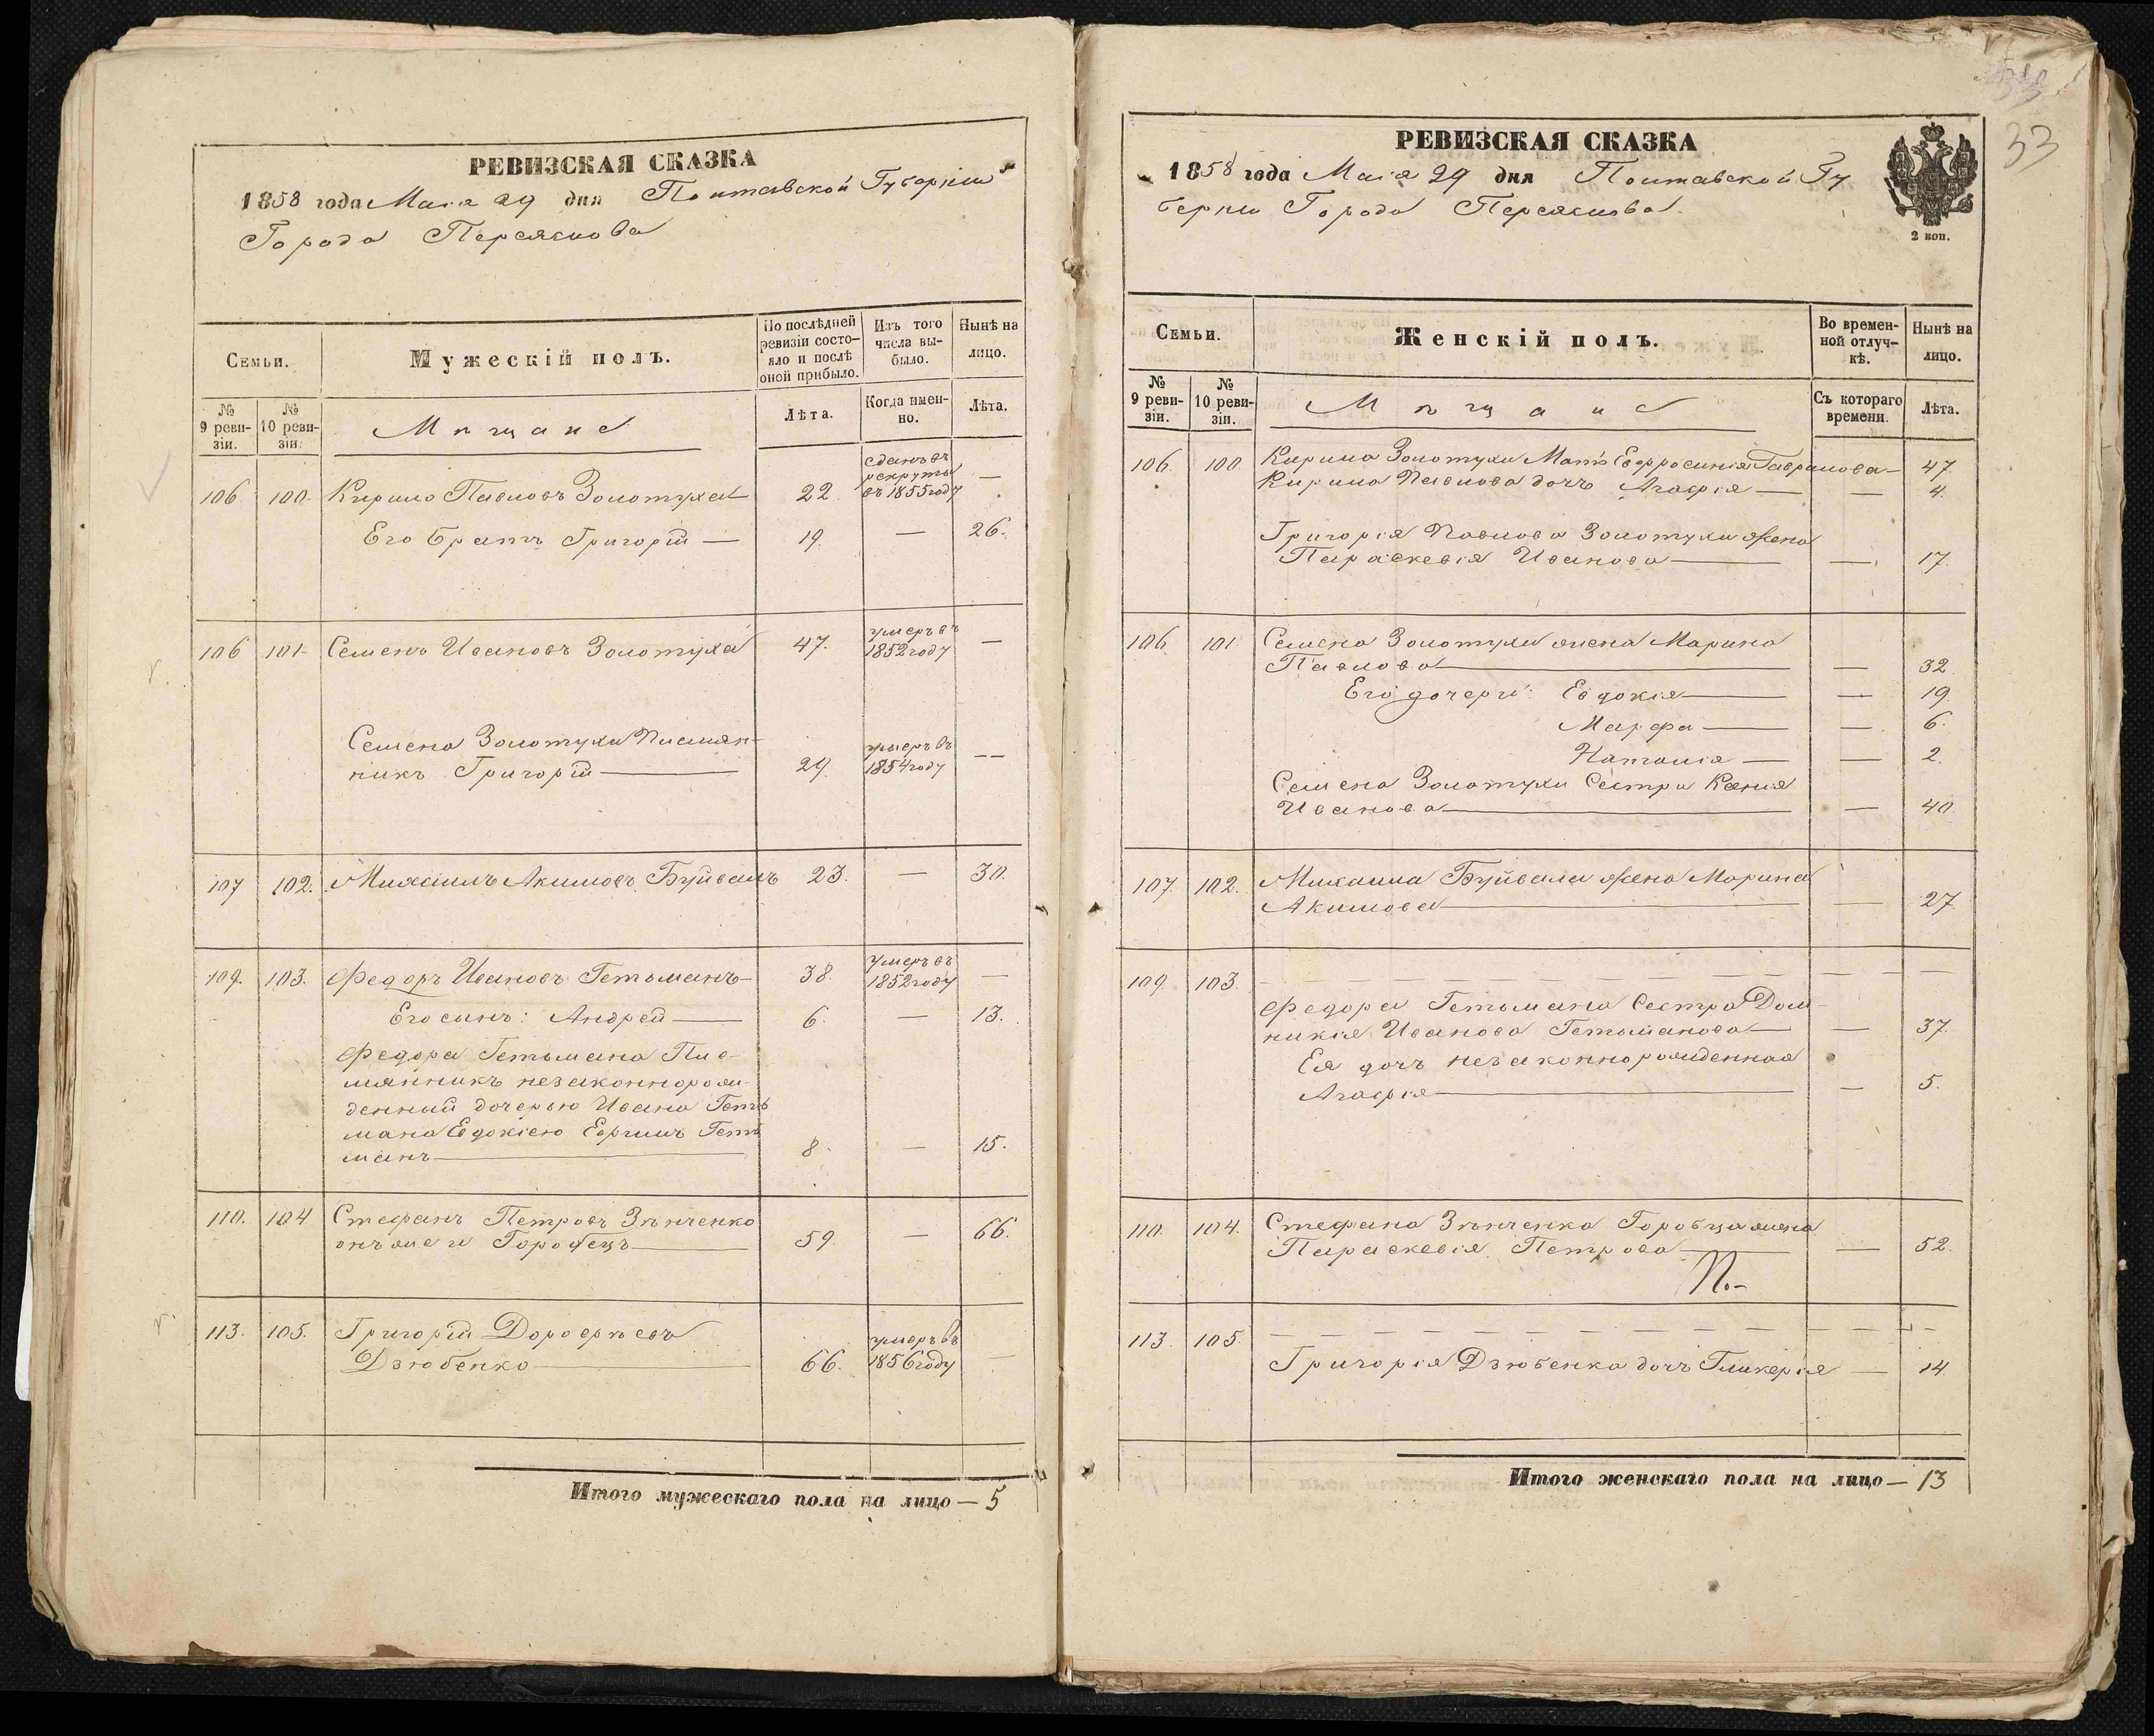 РЕВИЗСКАЯ СКАЗКА
1858 года Маія 29 дня Полтавской Губерніи
Города Переяслова
Семьи.
Мужескій полъ.
По послѣдней ревизіи состо-
яло и послѣ оной прибыло.
Изъ того числа вы-
было.
Нынѣ на лицо.
№ 9 реви-
зіи.
№ 10 реви-
зіи.
Мѣщане
Лѣта.
Когда имен-
но.
Лѣта.
106 100. Кирило Павловъ Золотуха 22 сданъ въ рекруты въ 1855 году —
Его Братъ Григорій — 19. — 26.
106 101. Семенъ Ивановъ Золотуха 47. умеръ въ 1852 году —
Семена Золотухи Племян-
никъ Григорій — 29. умеръ въ 1854 году —
107 102. Михаилъ Акимовъ Буйвалъ 23. — 30.
109. 103. Федоръ Ивановъ Гетьманъ — 38. умеръ въ 1852 году —
Его сынъ: Андрей — 6. — 13.
Федора Гетьмана Пле-
мянникъ незаконнорож-
денний дочерью Ивана Геть
мана Евдокіею Ефримъ Геть
манъ — 8. — 15.
110. 104 Стефанъ Петровъ Зѣнченко
онъ же и Горобецъ — 59. — 66.
113. 105. Григорій Дорофѣевъ
Дзюбенко — 66. умеръ въ 1856 году —
Итого мужескаго пола на лицо — 5
33
33
РЕВИЗСКАЯ СКАЗКА
1858 года Маія 29 дня Полтавской Гу
берніи Города Переяслова
2 коп.
Семьи.
Женскій полъ.
Во времен-
ной отлуч-
кѣ.
Нынѣ на лицо.
№ 9 реви-
зіи.
№ 10 реви-
зіи.
Мѣщане
Съ котораго времени.
Лѣта.
106. 100 Кирила Золотухи Мать Евфросинія Гаврилова — 47.
Кирила Павлова дочь Агафія — — 4.
Григорія Павлова Золотухи жена
Параскевія Иванова — — 17.
106. 101. Семена Золотухи жена Марина
Павлова — — 32
Его дочери: Евдокія — — 19.
Марфа — — 6.
Наталія — — 2.
Семена Золотухи Сестра Ксенія
Иванова — — 40.
107. 102. Михаила Буйвала жена Марина
Акимова — — 27
109. 103. — — — — — — — —
Федора Гетьмана Сестра Дом-
никія Иванова Гетьманова — — 37.
Ея дочь незаконнорожденная
Агафія — — 5.
110. 104. Стефана Зѣнченка Горобца жена
Параскевія Петрова — — 52.
113. 105. — — — — — — — —
Григорія Дзюбенка дочь Гликерія — 14.
Итого женскаго пола на лицо — 13